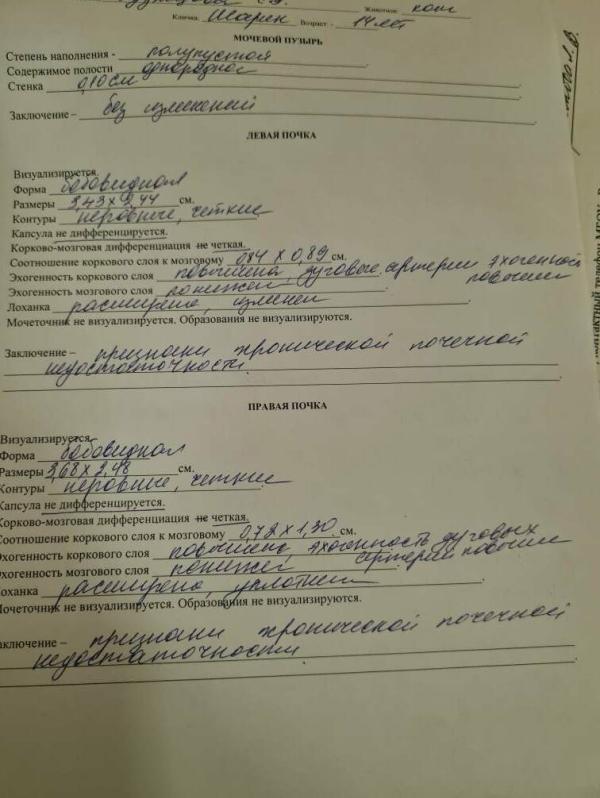 Животное кот
Кличка Шарик Возраст - 14 лет
МОЧЕВОЙ ПУЗЫРЬ
Степень наполнения - полупустой
Содержимое полости однородное
Стенка 0,10 см
Заключение – без изменений
ЛЕВАЯ ПОЧКА
Визуализируется.
Форма бобовидная
Размеры 3,43 х 2,44 см.
Контуры неровные, четкие
Капсула не дифференцируется.
Корково-мозговая дифференциация не четкая.
Соотношение коркового слоя к мозговому 0,84 х 0,89 см.
Эхогенность коркового слоя повышена, дуговые артерии эхогенной
Эхогенность мозгового слоя понижен повышен
Лоханка расширена, изменен
Мочеточник не визуализируется. Образования не визуализируются.
Заключение – признаки хронической почечной
недостаточности.
ПРАВАЯ ПОЧКА
Визуализируется.
Форма бобовидная
Размеры 3,68 х 2,48 см.
Контуры неровные, четкие
Капсула не дифференцируется.
Корково-мозговая дифференциация не четкая.
Соотношение коркового слоя к мозговому 0,72 х 1,30 см.
Эхогенность коркового слоя повышена эхогенность дуговых
Эхогенность мозгового слоя понижен артерий повышен
Лоханка расширена, уплотнен
Мочеточник не визуализируется. Образования не визуализируются.
Заключение – признаки хронической почечной
недостаточности